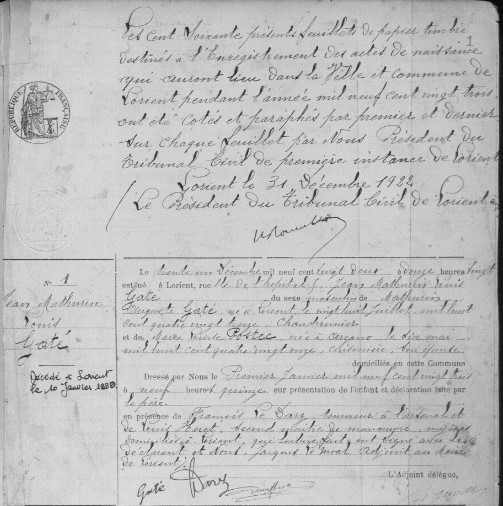 Les cent soixante présents feuillets de papier timbré
destinés à l'Enregistrement des actes de naissance
qui auront lieu dans la Ville et commune de
Lorient pendant l'année mil neuf cent vingt trois
ont été cotés et paraphés par premier et dernier
sur chaque feuillet par Nous Président du
Tribunal Civil de première instance de Lorient
Lorient le 31 Décembre 1922
Le Président du Tribunal Civil de Lorient
RÉPUBLIQUE FRANÇAISE
No 1
Jean Mathurin
Louis
Gaté
Décédé à Lorient
le 10 Janvier
Le trente un Décembre mil neuf cent vingt deux à douze heures vingt
est né à Lorient, rue de l'hopital Jean Mathurin Louis
Gaté du sexe masculin de Mathurin
Auguste Gaté né à Lorient le vingt huit juillet mil huit
cent quatre vingt Chaudronnier
et de Marie Postec née à Arzano le six mai
mil huit cent quatre vingt onze son épouse
domiciliés en cette Commune
Dressé par Nous le Premier Janvier mil neuf cent vingt trois
à neuf heures quinze sur présentation de l'enfant et déclaration faite par
le père
en présence de François Le Dorz tourneur à l'arsenal et
de Louis second maître de manœuvre, majeurs
domiciliés à Lorient, qui lecture faite ont signé avec le
déclarant et Nous, Jacques Le adjoint au Maire
de Lorient
L'Adjoint délégué,
Gaté Dorz